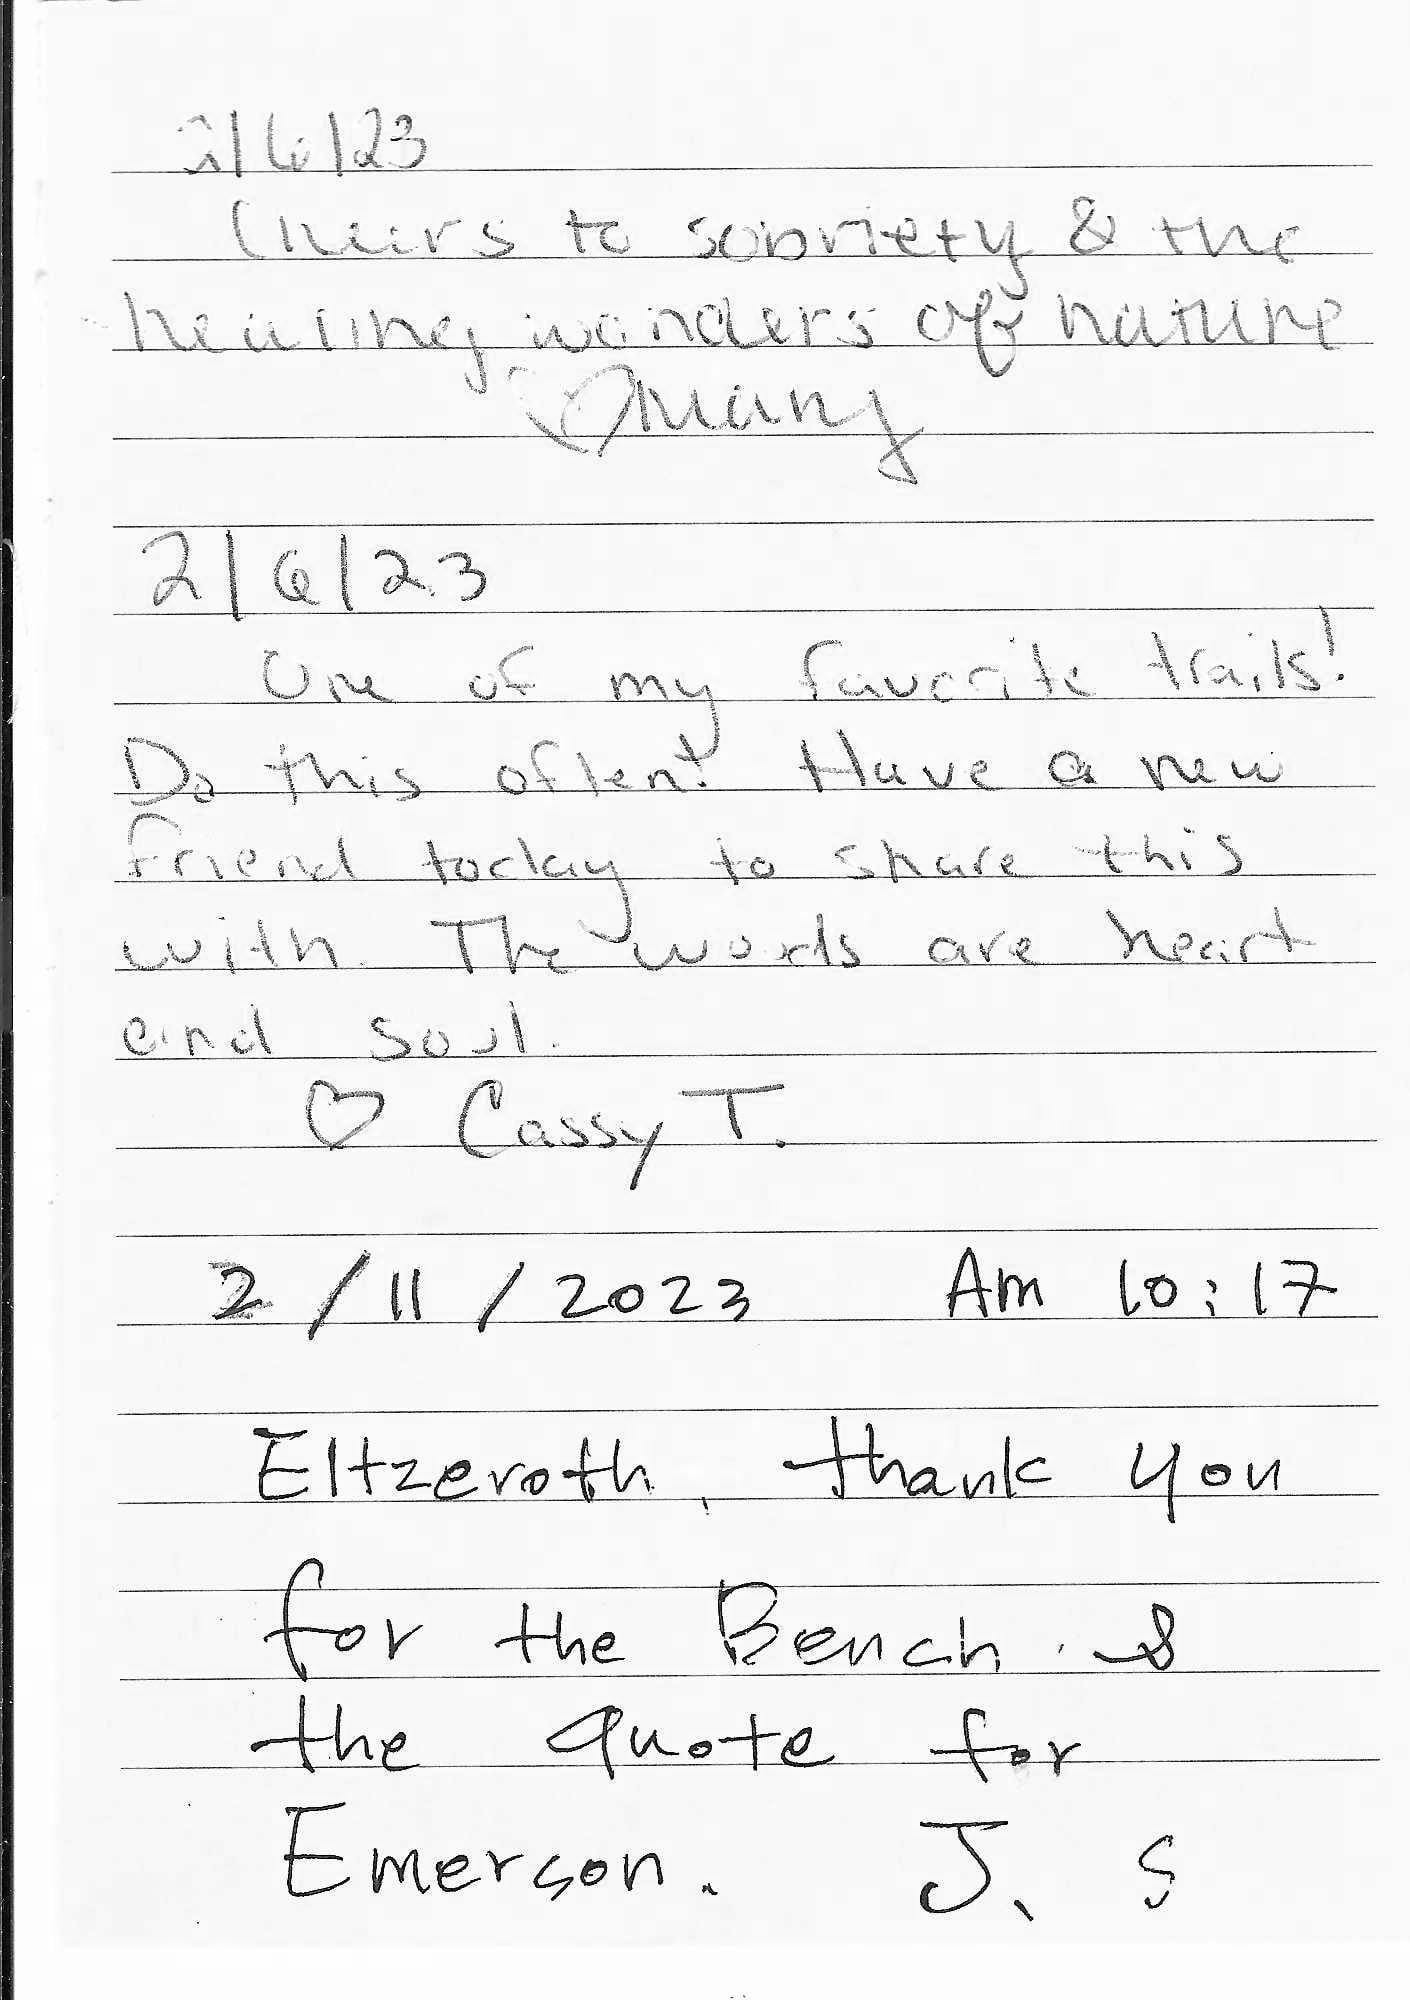 2/6/23
Cheers to sobriety & the
healing wonders of nature
♡ Many
2/6/23
One of my favorite trails!
Do this often! Have a new
friend today to share this
with. The words are heart
and soul.
♡ Cassy T.
2/11/2023 Am 10:17
Eltzeroth, thank you
for the Bench &
the quote for
Emerson. J. S